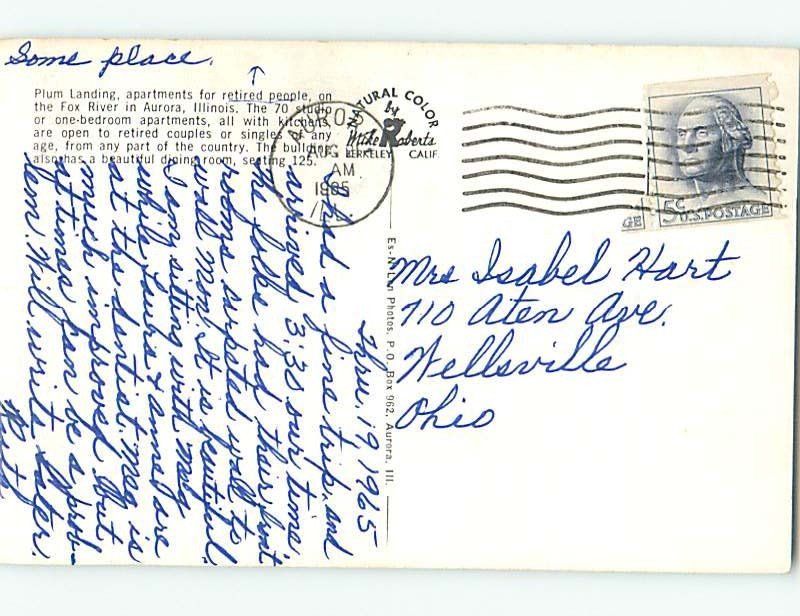 Some place.
Plum Landing, apartments for retired people, on
the Fox River in Aurora, Illinois. The 70 studio
or one-bedroom apartments, all with kitchens,
are open to retired couples or singles of any
age, from any part of the country. The building
also has a beautiful dining room, seating 125.
NATURAL COLOR
by
Mike Roberts
BERKELEY CALIF.
AURORA
AUG
AM
1965
GE
5¢ U.S. POSTAGE
Es-N-Len Photos, P. O. Box 962, Aurora, Ill.
Mrs Isabel Hart
710 Aten Ave.
Wellsville
Ohio
Thru. 19, 1965
had a fine trip, and
arrived 3:30 our time,
the folks had their front
rooms carpeted wall to
wall Mon. It is beautiful.
I am sitting with Meg
while Laura & Anne are
at the dentist. Meg is
much improved but
at times can be a prob-
lem. Will write later.
Ruth